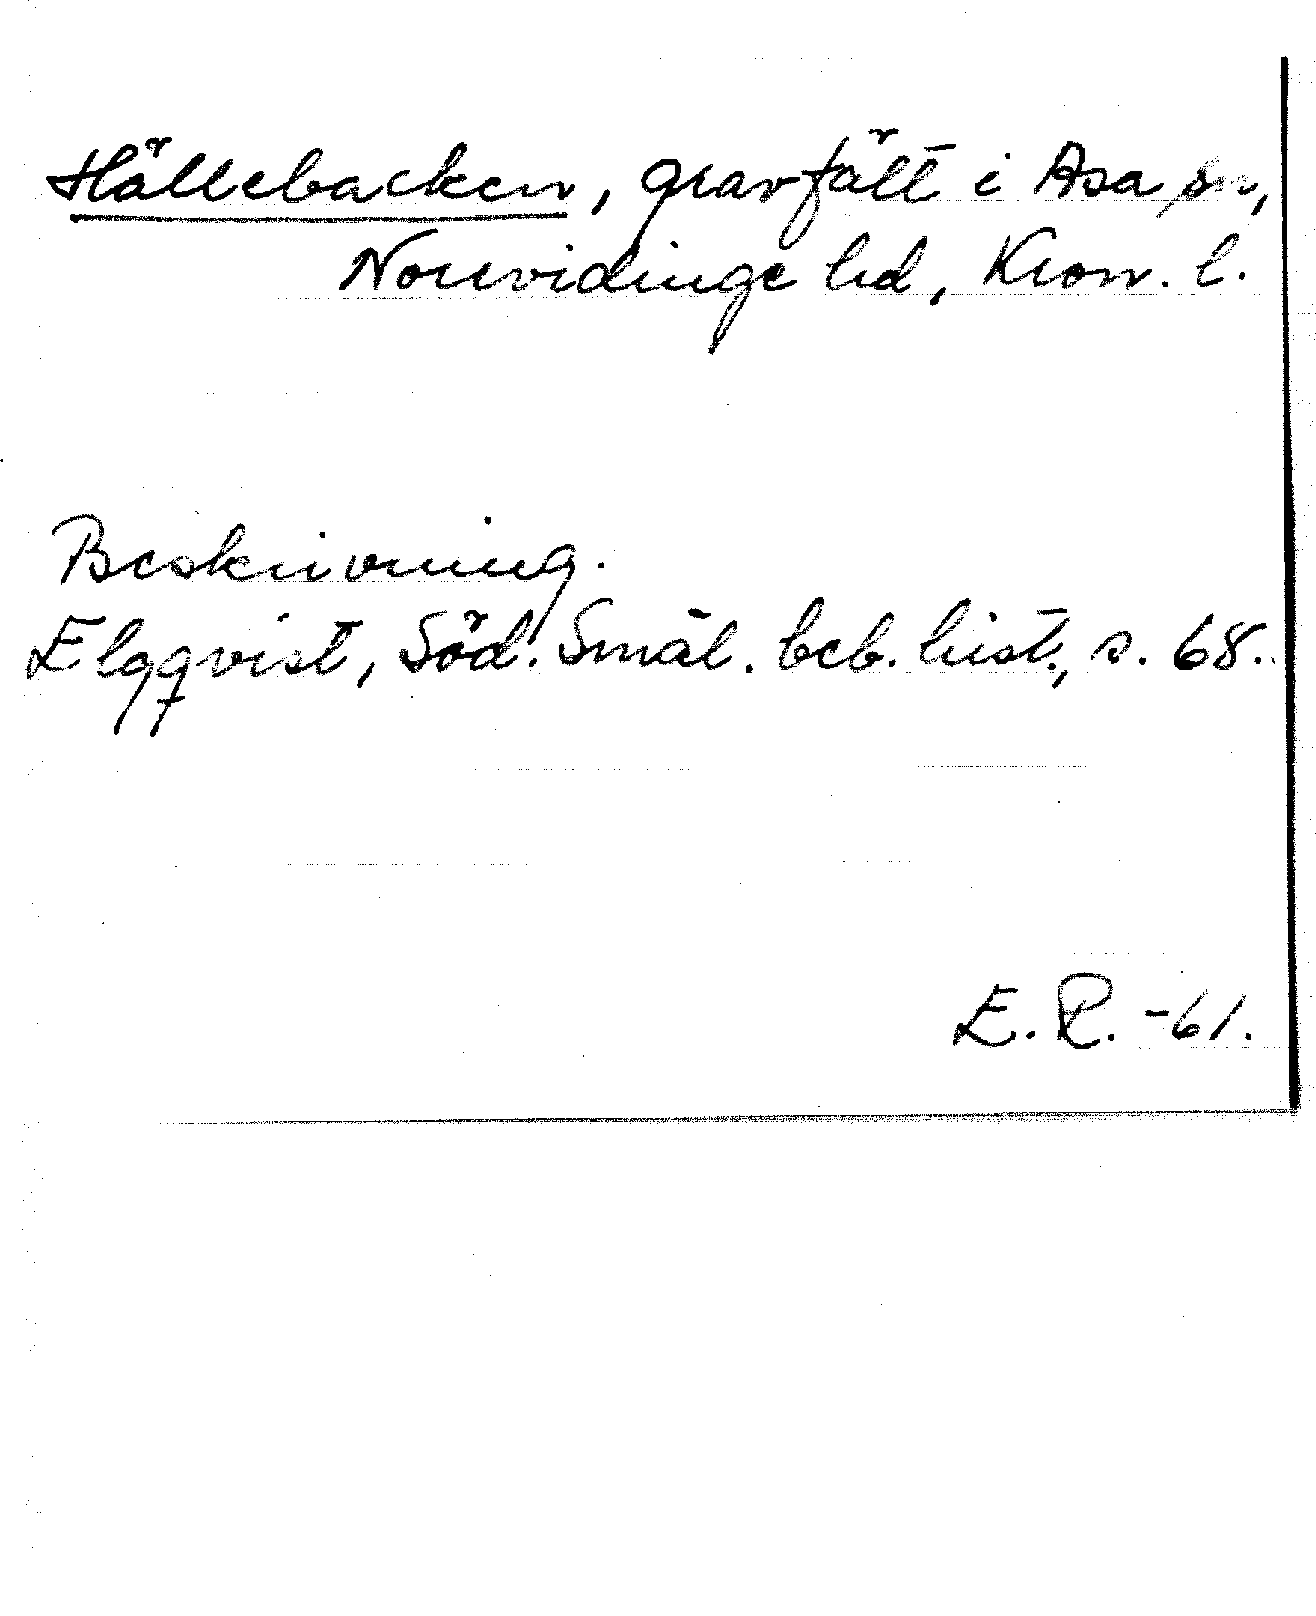 Hällebacken, gravfält i Asa sn,
Norrvidinge hd, Kron. l.
Beskrivning.
Elgqvist, Söd. Smål. beb. hist., s. 68.
E. R. -61.